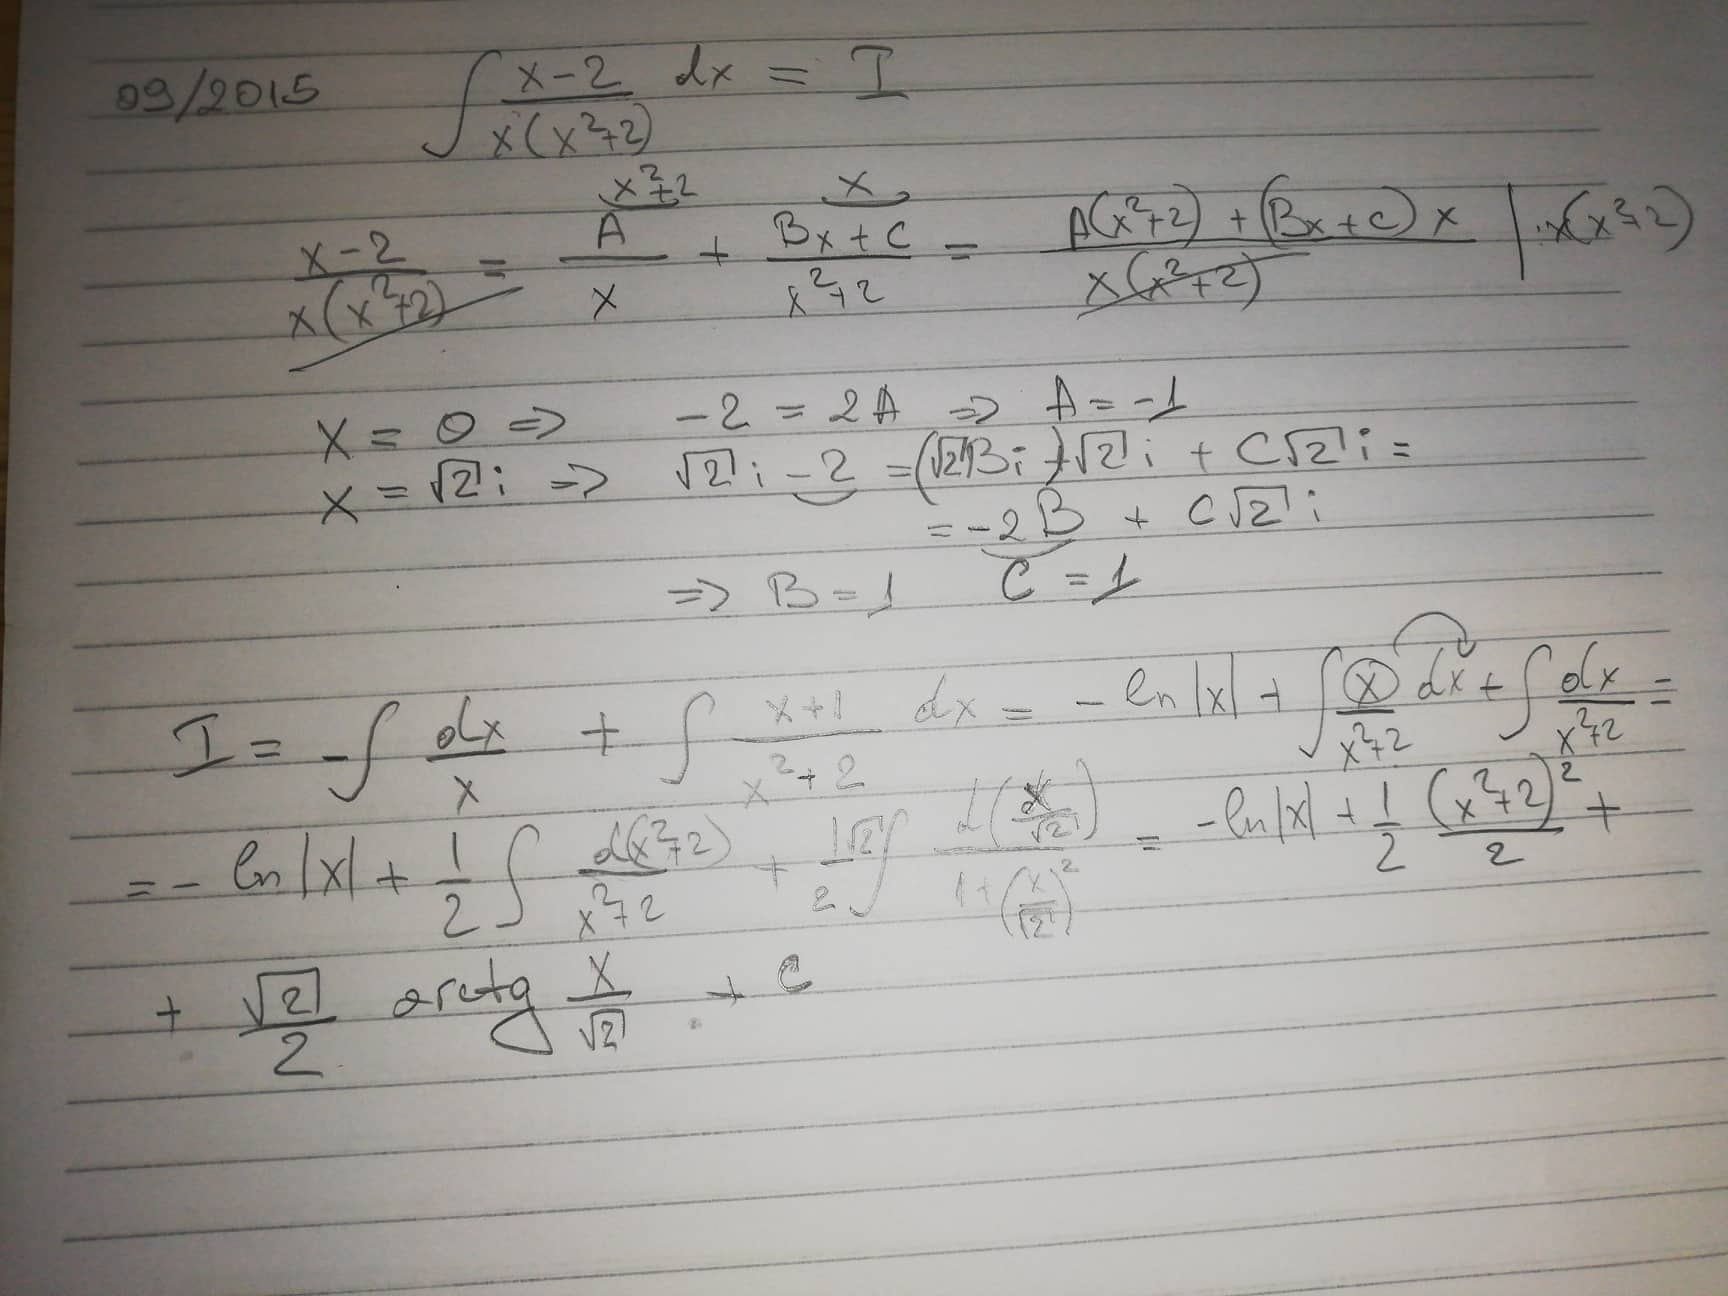 09/2015 ∫ (x-2)/(x(x²+2)) dx = I
(x-2)/(x(x²+2)) = A/x (x²+2) + (Bx+C)/(x²+2) (x) = (A(x²+2) + (Bx+C)x)/(x(x²+2)) | ·x(x²+2)
x = 0 => -2 = 2A => A = -1
x = √2 i => √2 i - 2 = (√2 B i) √2 i + C√2 i =
= -2B + C√2 i
=> B = 1 C = 1
I = -∫ dx/x + ∫ (x+1)/(x²+2) dx = - ln|x| + ∫ x/(x²+2) dx + ∫ dx/(x²+2) =
= - ln|x| + 1/2 ∫ d(x²+2)/(x²+2) + 1√2/2 ∫ d(x/√2)/(1+(x/√2)²) = -ln|x| + 1/2 (x²+2)²/2 +
+ √2/2 arctg x/√2 + C